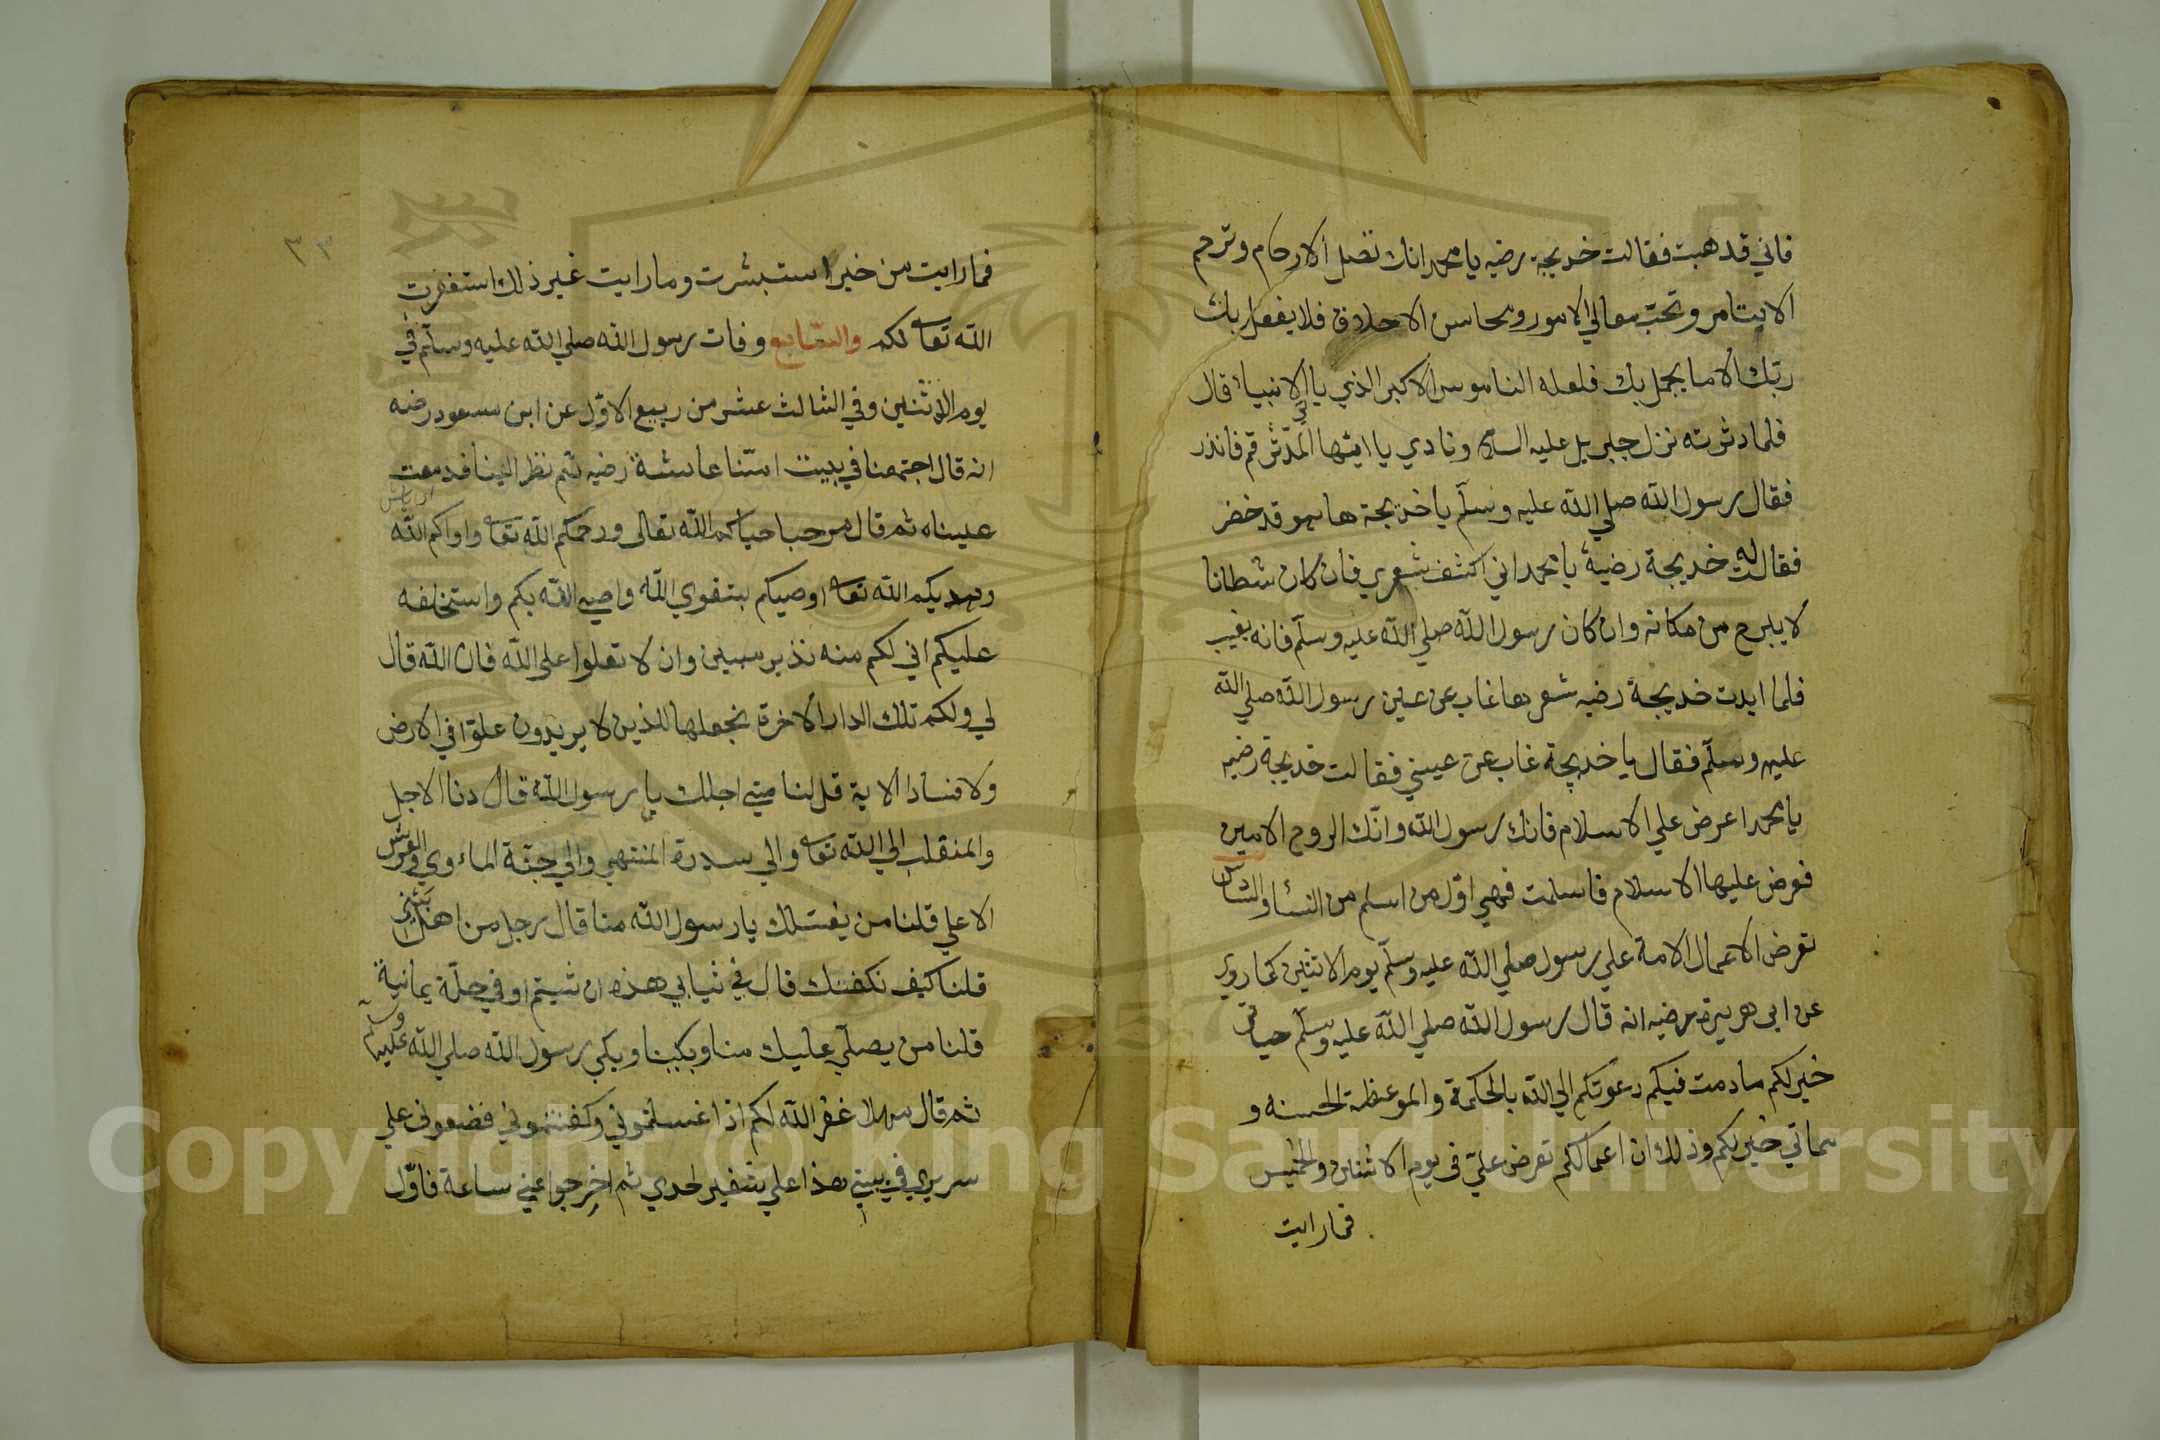 فاني قد هبت فقالت خديجة رضيه يا محمد انك تصل الارحام وترحم
الايتامر وتحب معالي الامور ومحاسن الاخلاق فلا يفعل بك
ربك الا ما يجمل بك فلعله الناموس الاكبر الذي ياتي الانبياء قال
فلما دثرته نزل جبريل عليه السلام ونادي يا ايها المدثر قم فانذر
فقال رسول الله صلي الله عليه وسلم يا خديجة ها هو قد خضر
فقالت له خديجة رضية يا محمد اني اكشف شعري فان كان شطانا
لا يبرح من مكانه وان كان رسول الله صلي الله عليه وسلم فانه يغيب
فلما ابدت خديجة رضيه شعرها غاب عن عين رسول الله صلي الله
عليه وسلم فقال يا خديجة غاب عن عيني فقالت خديجة رضيه
يا محمد اعرض علي الاسلام فانك رسول الله وانك الروح الامين
فعرض عليها الاسلام فاسلمت فهي اول من اسلم من النساء والسادس
تعرض الاعمال الامة علي رسول صلي الله عليه وسلم يوم الاثنين كما روي
عن ابي هريرة رضيه انه قال رسول الله صلي الله عليه وسلم حياتي
خير لكم ما دمت فيكم دعوتكم الي الله بالحكمة والموعظة الحسنه و
مماتي خير لكم وذلك ان اعمالكم تعرض علي في يوم الاثنين والخميس
فما رايت
٣٣
فما رايت من خير استبشرت وما رايت غير ذلك استغفرت
الله تعا لكم والسابع وفات رسول الله صلي الله عليه وسلم في
يوم الاثنين وفي الثالث عشر من ربيع الاول عن ابن مسعود رضه
انه قال اجتمعنا في بيت امنا عاىشة رضيه ثم نظر الينا فدمعت
عيناه ثم قال مرحبا حياكم الله تعالى ورحمكم الله تعا واواكم الله
وهديكم الله تعا اوصيكم بتقوي الله واصي الله بكم واستخلفه
عليكم اني لكم منه نذير مبين وان لا تعلوا علي الله فان الله قال
لي ولكم تلك الدار الاخرة نجعلها للذين لا يريدون علوا في الارض
ولا فسادا الاية قلنا متي اجلك يا رسول الله قال دنا الاجل
والمنقلب الي الله تعا والي سدرة المنتهي والي جنة الماءوي والعرش
الاعلي قلنا من يغسلك يا رسول الله منا قال رجل من اهل بيتي
قلنا كيف نكفنك قال في ثيابي هذه ان شيتم او في حلة يمانية
قلنا من يصلي عليك منا وبكينا وبكي رسول الله صلي الله عليه وسلم
ثم قال مهلا غفر الله لكم اذا غسلتموني وكفنتموني فضعوني علي
سريري في بيتي هذا علي شفير لحدي ثم اخرجوا عني ساعة فاول
Copyright © King Saud University
1957